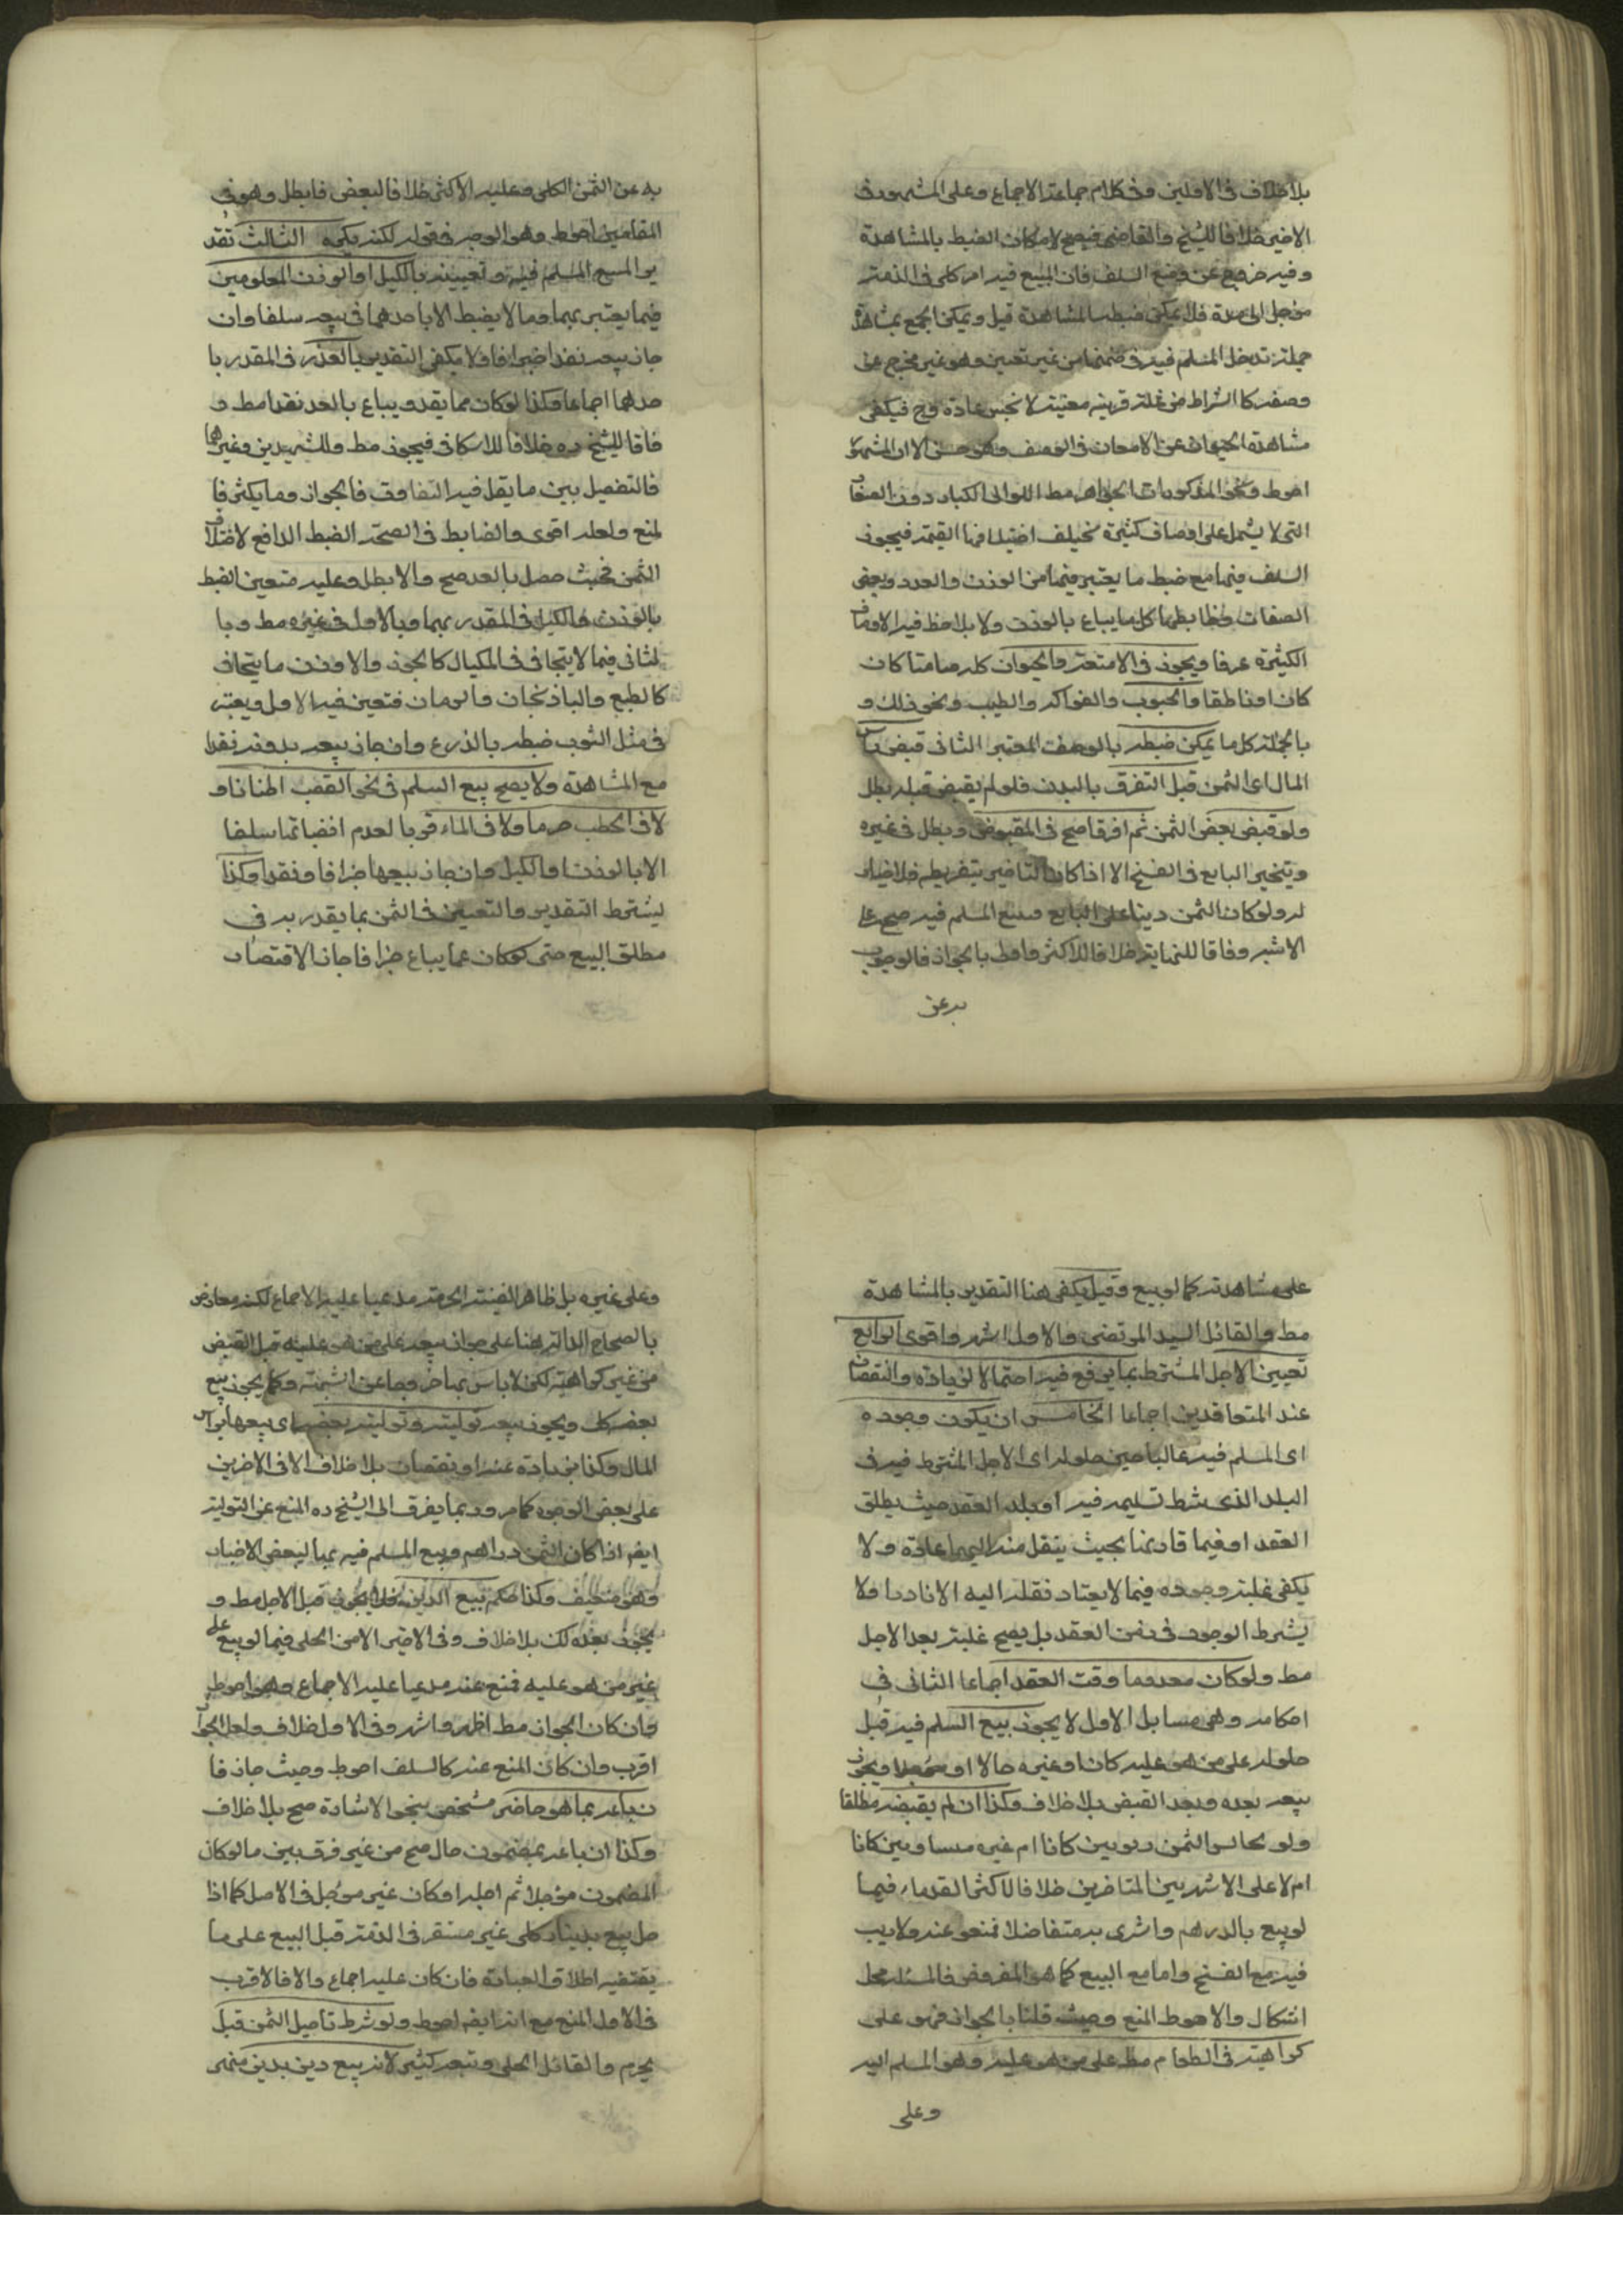 بلا خلاف في الاولين وفي كلام جماعة الاجماع وعلى المشهور في
الاخير خلافا للشيخ والقاضي فيصح لامكان الضبط بالمشاهدة
وفيه خروج عن وضع السلف فان المبيع فيه امر كلي في الذمة
مؤجل الى مدة فلا يمكن ضبطه بالمشاهدة قيل ويمكن الجمع بمشاهدة
جملة تدخل المسلم فيه في ضمنها من غير تعيين وهو غير مخرج عن
وصفه كاشتراط من غلة قرية معينة لا تخيس عادة وح فيكفي
مشاهدة الحيوان عن الامعان في الوصف وهو حسن الا ان المشهور
احوط ونحو المذكورات الجواهر مط اللوالي الكبار دون الصغار
التي لا يشتمل على اوصاف كثيرة تختلف اختلافها القيمة فيجوز
السلف فيها مع ضبط ما يعتبر فيها من الوزن والعدد وبعض
الصفات وضابطها كل ما يباع بالوزن ولا يلاحظ فيه الاوصاف
الكثيرة عرفا ويجوز في الامتعة والحيوان كله صامتا كان
كان او ناطقا والحبوب والفواكه والطيب ونحو ذلك و
بالجملة كل ما يمكن ضبطه بالوصف المعتبر الثاني قبض راس
المال اي الثمن قبل التفرق بالبدن فلو لم يقبض قبله بطل
ولو قبض بعض الثمن ثم افترقا صح في المقبوض وبطل في غيره
ويتخير البايع في الفسخ الا اذا كان التاخير بتفريطه فلا خيار
له ولو كان الثمن دينا على البايع صح المسلم فيه صح على
الاشبه وفاقا للنهاية خلافا للاكثر واحوط بالجواز فالوجوب
به عن
به عن الثمن الكلي وعليه الاكثر خلافا لبعض فابطل وهو في
المقامين احوط وهو الوجه في قوله لكنه يكره الثالث تقد
ير المبيع المسلم فيه وتعيينه بالكيل او الوزن المعلومين
فيما يعتبر بهما وما لا يضبط الا باحدهما في بيعه سلفا وان
جاز بيعه نقدا جزافا ولا يكفي التقدير بالعدد في المقدر با
حدهما اجماعا وكذا لو كان مما يعد ويباع بالعد نقدا مط و
فاقا للشيخ ره خلافا للاسكافي فيجوز مط وللشهيدين وغيرهما
فالتفصيل بين ما يقل فيه التفاوت فالجواز وما يكثر فا
لمنع ولعله اقوى والضابط في الصحة الضبط الدافع لاختلاف
الثمن فحيث حصل بالعد صح والا بطل وعليه متعين الضبط
بالوزن والكيل في المقدر بهما وبالاول في غيره مط وبا
لثاني فيما لا يتجافى في المكيال كالجوز والا وزن ما يتجافى
كالبطيخ والباذنجان والرمان فتعين فيه الاول ويعتبر
في مثل الثوب ضبطه بالذرع وان جاز بيعه بدونه نقدا
مع المشاهدة ولا يصح بيع السلم في نحو القصب اطنانا و
لا في الحطب حزما ولا في الماء قربا لعدم انضباطها سلفا
الا بالوزن والكيل وان جاز بيعها جزافا ونقدا وكذا
يشترط التقدير والتعيين في الثمن بما يقدر به في
مطلق البيع حتى لو كان مما يباع جزافا جاز الاقتصار
على مشاهدته كما لو بيع وقيل يكفي هنا التقدير بالمشاهدة
مط والقائل السيد المرتضى والاول اشهر واقوى الرابع
تعيين الاجل المشترط بما يرفع فيه احتمال الزيادة والنقصان
عند المتعاقدين اجماعا الخامس ان يكون وجوده
اي المسلم فيه غالبا حين حلوله اي الاجل المشترط فيه في
البلد الذي شرط تسليمه فيه او بلد العقد حيث يطلق
العقد او فيما قاربهما بحيث ينتقل منه اليهما عادة ولا
يكفي غلبة وجوده فيما لا يعتاد نقله اليه الا نادرا ولا
يشترط الوجود في زمن العقد بل يصح غلبته بعد الاجل
مط ولو كان معدوما وقت العقد اجماعا الثاني في
احكامه وهي مسايل الاول لا يجوز بيع السلم فيه قبل
حلوله على من هو عليه كان او غيره حالا او مؤجلا ويجوز
بيعه بعده وبعد القبض بلا خلاف وكذا ان لم يقبضه مطلقا
ولو تجانس الثمن ربويين كانا ام غيره متساويين كانا
ام لا على الاشهر بين المتاخرين خلافا لاكثر القدماء فيما
لو بيع بالدرهم واشترى به متفاضلا فمنعوا عنه ولا ريب
فيه مع الفسخ واما مع البيع كما هو المفروض فالمسئلة محل
اشكال والاحوط المنع وحيث قلنا بالجواز فهو على
كراهية في الطعام مط على من هو عليه وهو المسلم اليه
وعلى
وعلى غيره بل ظاهر الغنية الحرمة مدعيا عليه الاجماع لكنه معارض
بالصحاح الدالة هنا على جواز بيعه على من هو عليه قبل القبض
من غير كراهة لكن لا باس بها خروجا عن الشبهة وكما يجوز بيع
بعضه كك ويجوز بيعه تولية وتولية بعضه اي بيعها براس
المال وكذا بزيادة عنه او نقصان بلا خلاف الا في الاخرين
على بعض الوجوه كما مر وربما يفرق الى الشيخ ره المنع عن التولية
ايضا اذا كان الثمن دراهم وبيع المسلم فيه بها لبعض الاخبار
وهو ضعيف وكذا حكم بيع الدين فلا يجوز قبل الاجل مط و
يجوز بعده لكن بلا خلاف وفي الاخير الا من الحلي فيما لو بيع على
غير من هو عليه فمنع عنه مدعيا عليه الاجماع وهو احوط
وان كان الجواز مط اظهر واشهر وفي الاول خلاف ولعل الجواز
اقرب وان كان المنع عنه كالسلف احوط وحيث جاز فا
ن باعه بما هو حاضر مشخص بنحو الاشارة صح بلا خلاف
وكذا ان باعه بمضمون حال صح من غير فرق بين ما لو كان
المضمون مؤجلا ثم اجله او كان غير مؤجل في الاصل كما اذا
حل بيع بدينار كلي غير مستقر في الذمة قبل البيع على ما
يقتضيه اطلاق العبارة فان كان عليه اجماع والا فالاقرب
في الاول المنع مع انه ايضا احوط ولو شرط تاجيل الثمن قيل
يحرم والقائل الحلي وتبعه كثير لانه بيع دين بدين منهي